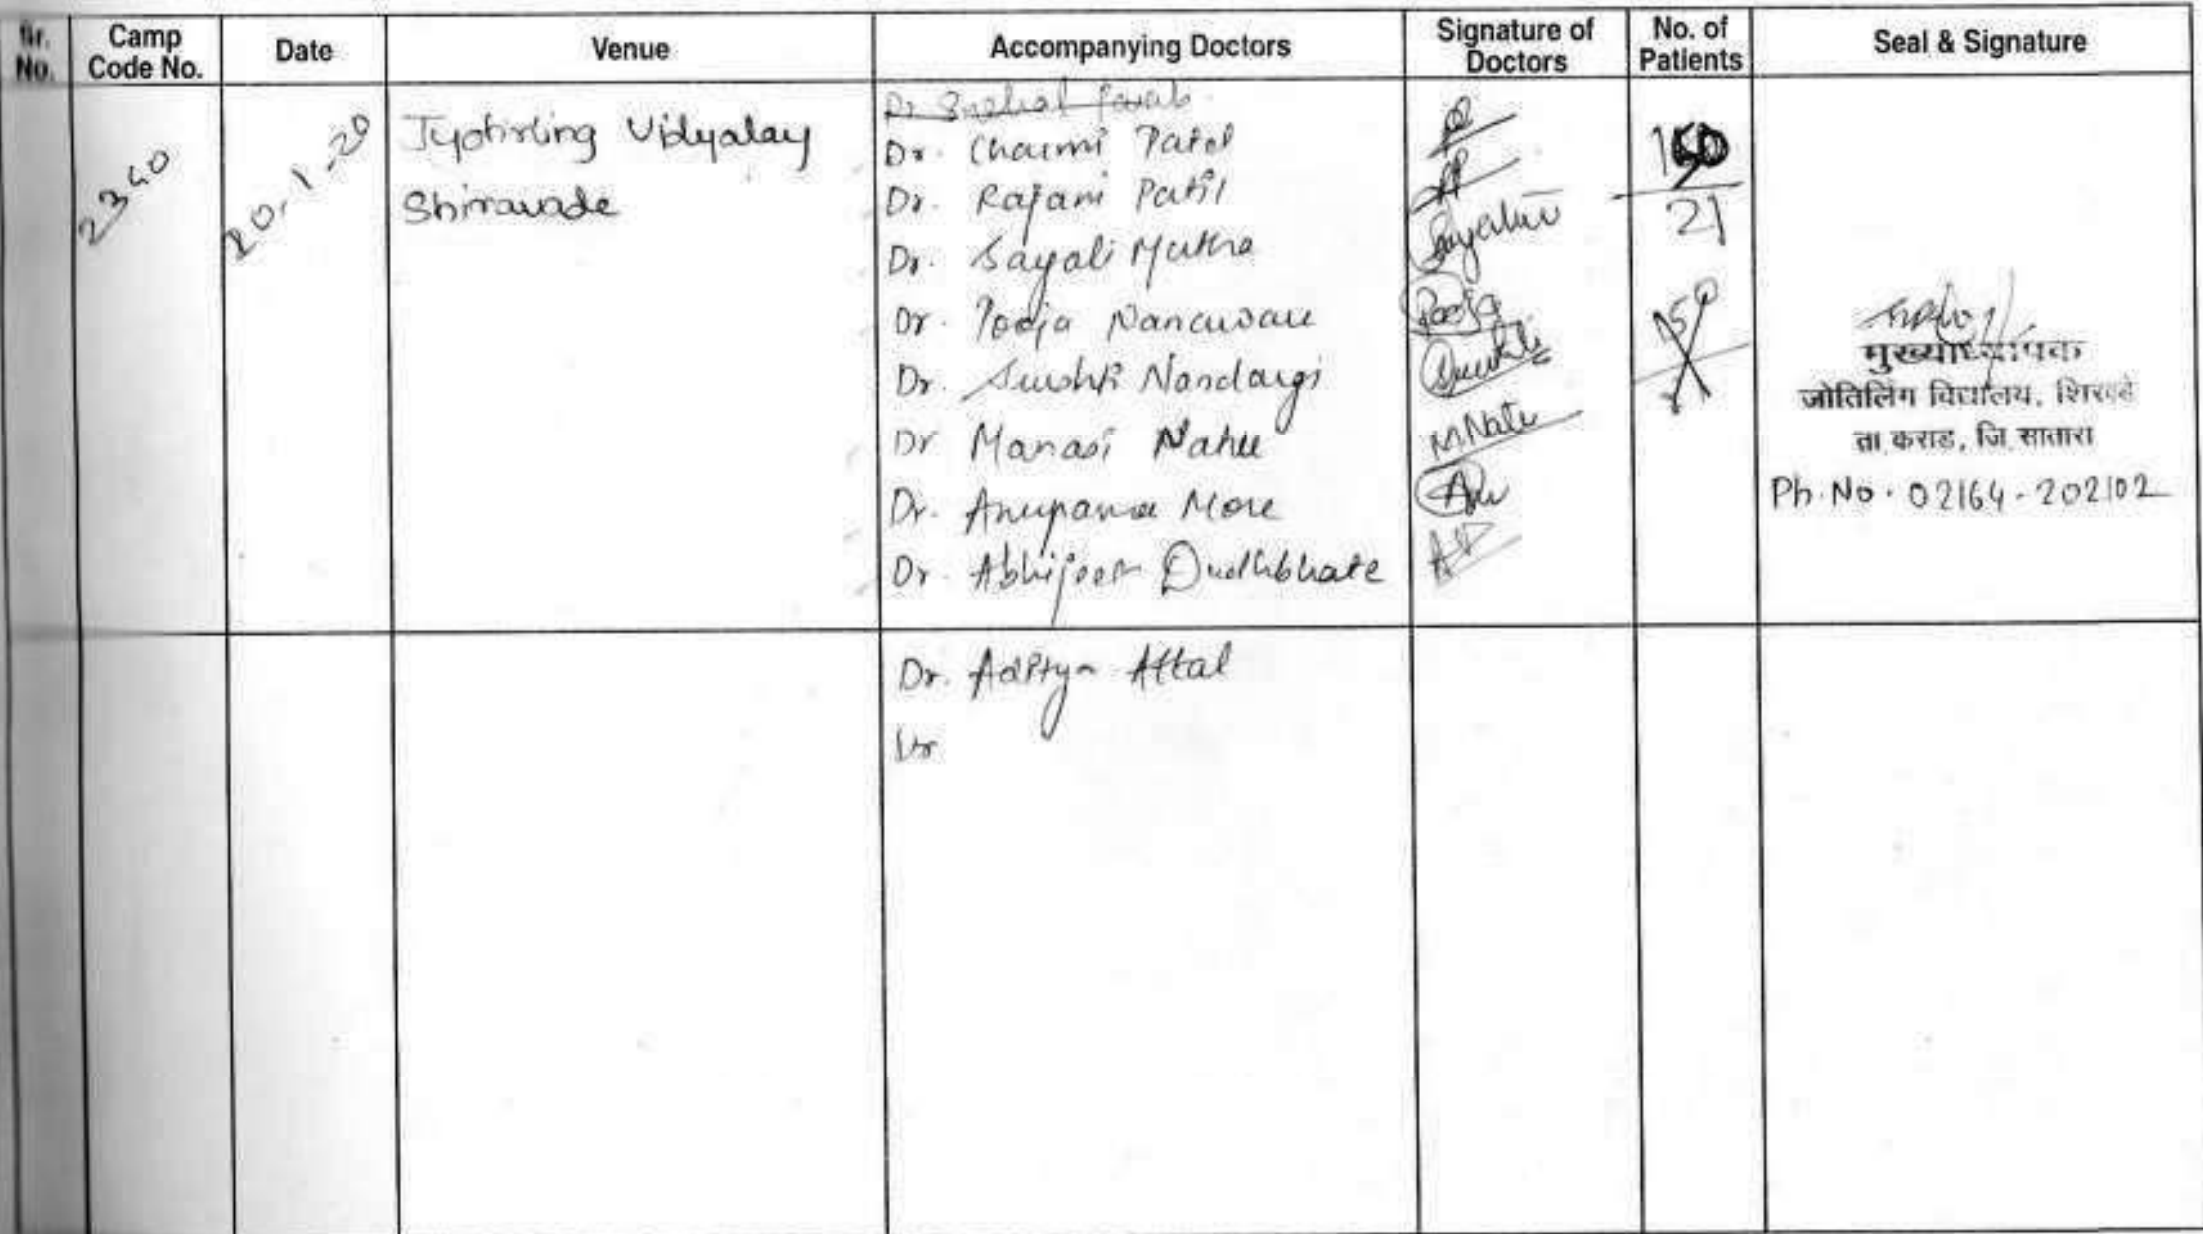 Sr. No. Camp Code No. Date Venue Accompanying Doctors Signature of Doctors No. of Patients Seal & Signature
2340
20.1.20
Jyotirling Vidyalay
Shirawade
Dr. Charmi Patel
Dr. Rajani Patil
Dr. Sayali
Dr. Pooja Nanaware
Dr. Nandargi
Dr Manasi
Dr. Anupama More
Dr. Abhijeet Dudhbhate
Dr. Aditya Attal
Dr
Pooja
M.Natu
AD
21
150
मुख्याध्यापक
जोतिर्लिंग विद्यालय, शिरवडे
ता कराड, जि सातारा
Ph. No. 02164-202102